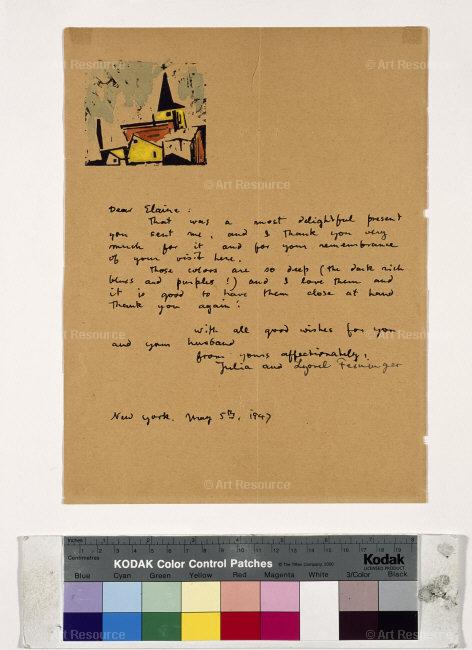 © Art Resource
© Art Resource
© Art Resource
Dear Elaine:
That was a most delightful present
you sent me, and I thank you very
much for it and for your remembrance
of your visit here.
Those colors are so deep (the dark rich
blues and purples!) and I love them and
it is good to have them close at hand
Thank you again!
With all good wishes for you
and your husband
from yours affectionately,
Julia and Lyonel Feininger
© Art Resource
© Art Resource
New York. May 5th, 1947
© Art Resource
Inches 1 2 3 4 5 6 7 8
Centimetres 1 2 3 4 5 6 7 8 9 10 11 12 13 14 15 16 17 18 19
KODAK Color Control Patches © The Tiffen Company, 2000 Kodak
LICENSED PRODUCT
Blue Cyan Green Yellow Red Magenta White 3/Color Black
© Art Resource
© Art Resource